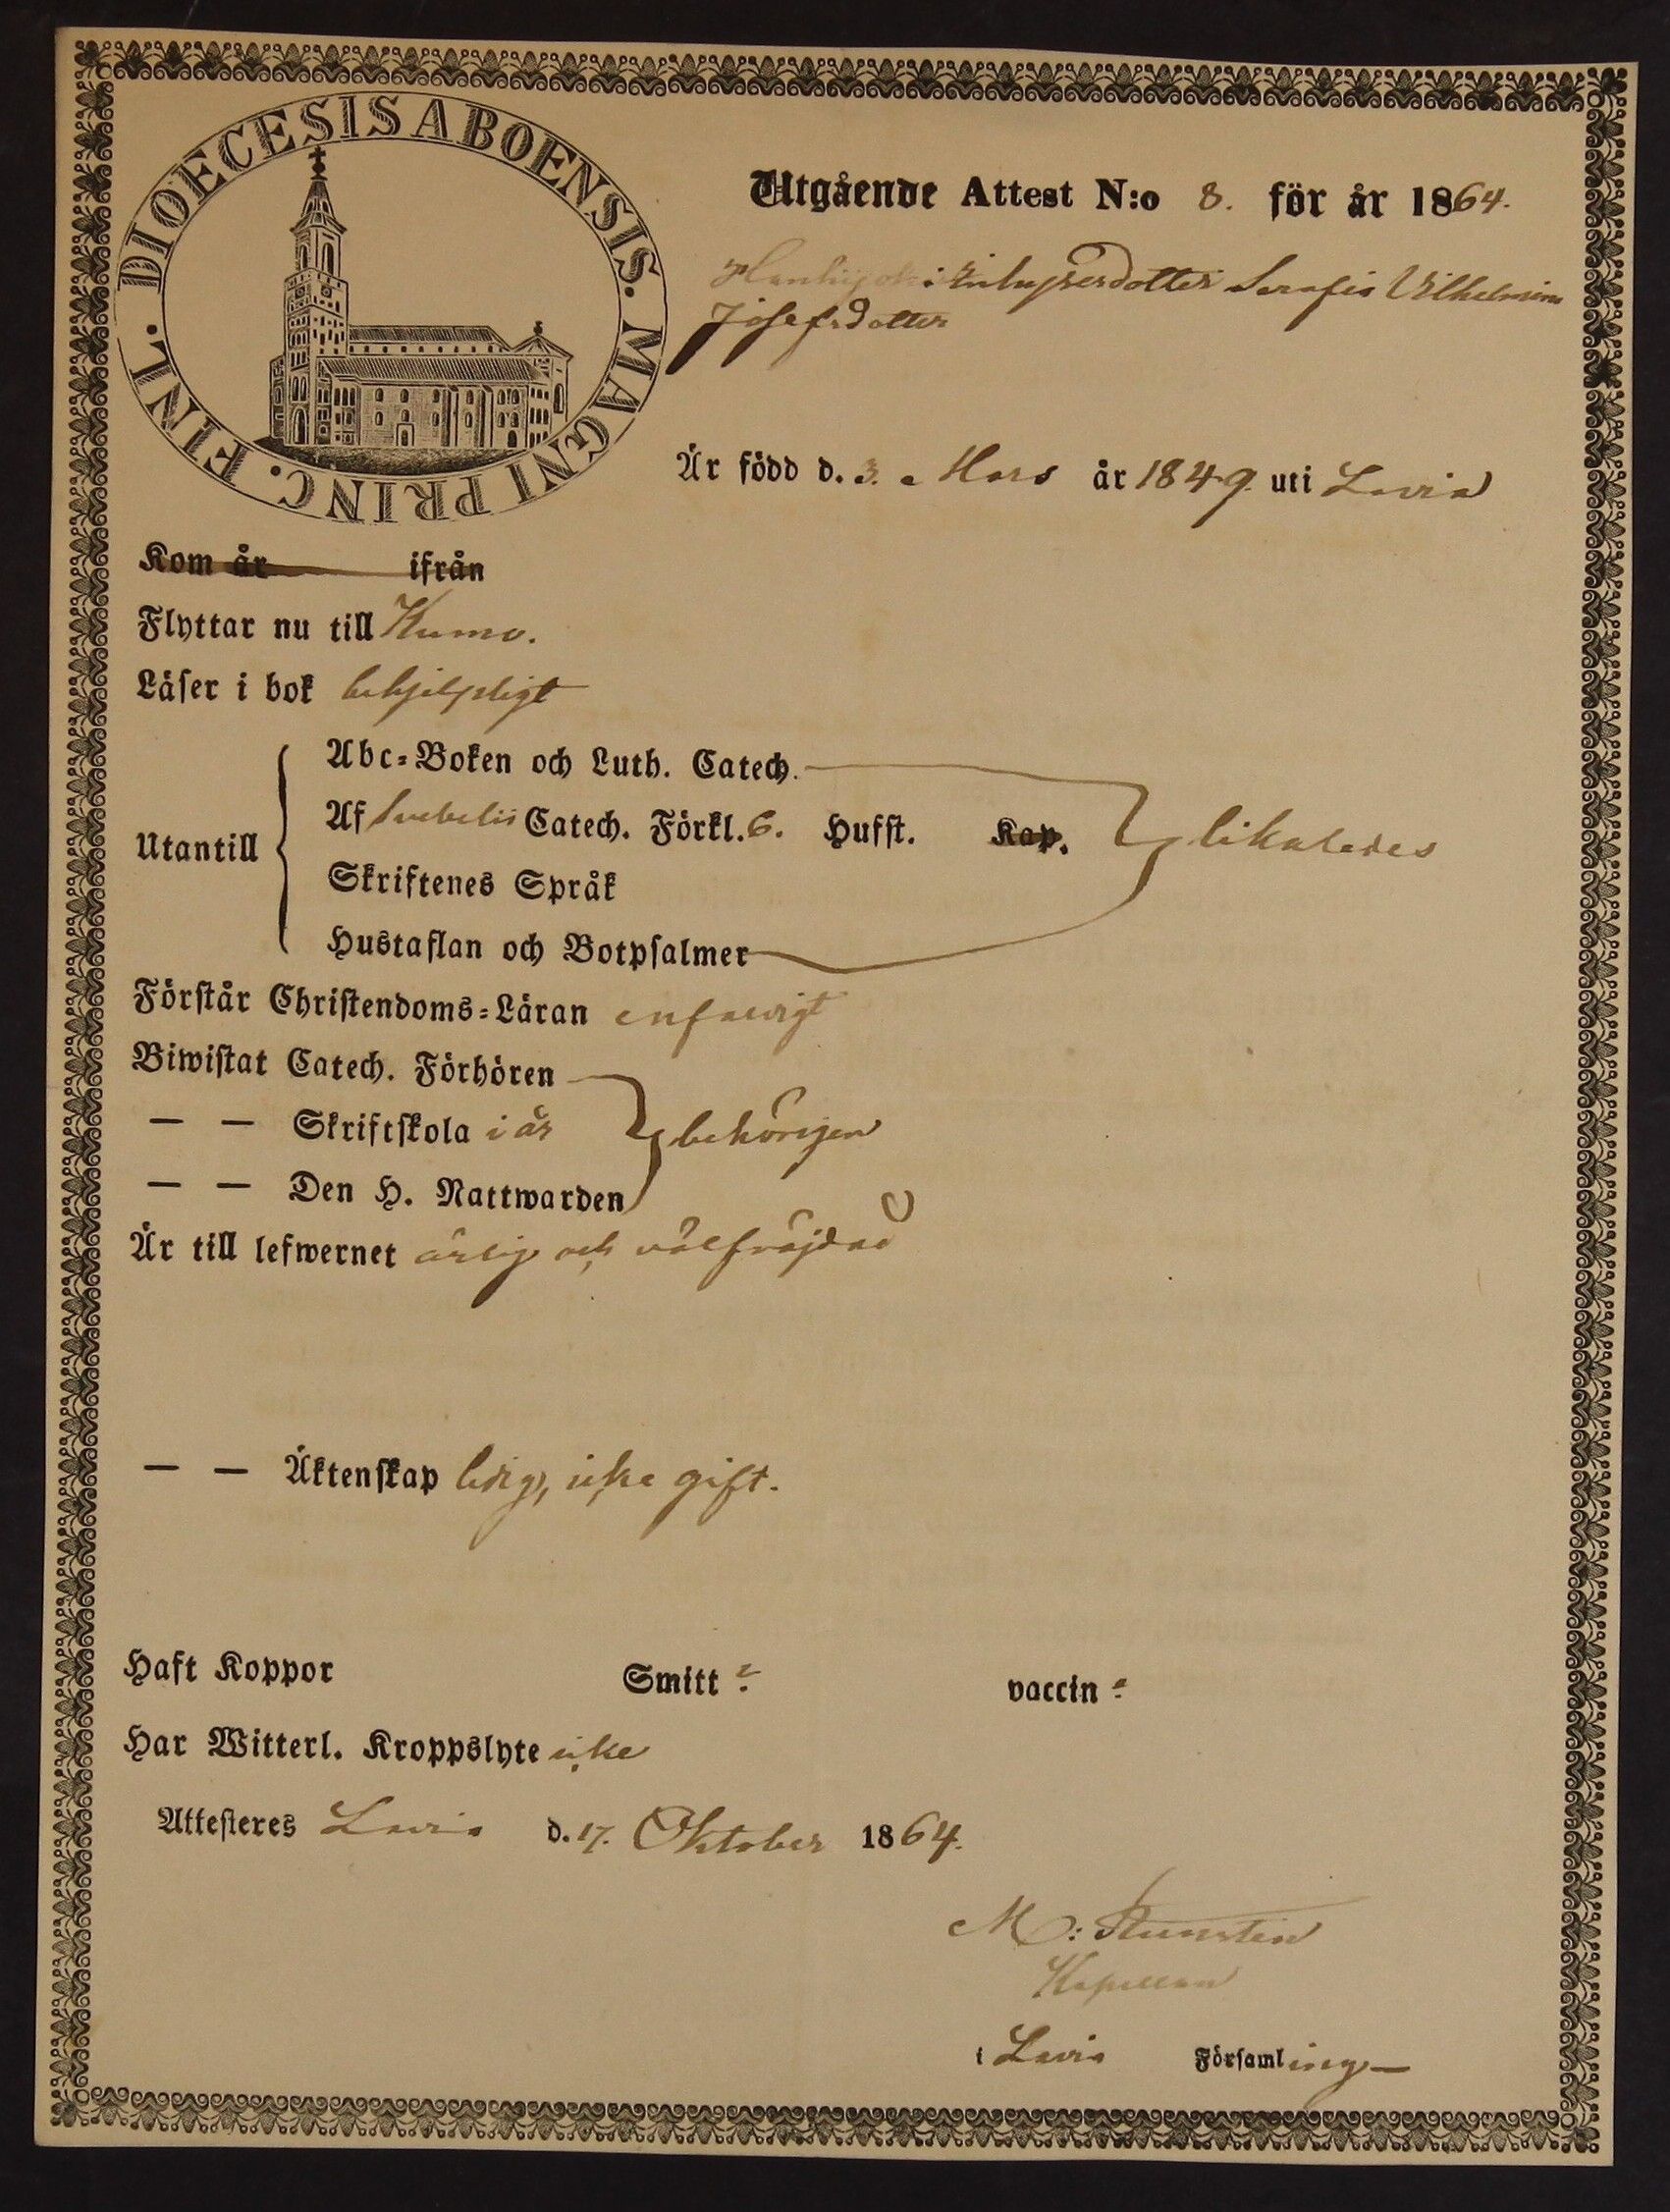 DIOECESIS ABOENSIS. MAGNI PRINC. FINL.
Utgående Attest N:o 8. för år 1864.
Inhysesdotter Serafia Vilhelmina
Josefsdotter
Är född d. 3. Mars år 1849. uti Lavia
Kom år ifrån
Flyttar nu till Kumo.
Läser i bok behjelpligt
Utantill
Abc-Boken och Luth. Catech.
Af Svebelii Catech. Förkl. 6. Hufst. Kap.
likaledes
Skriftenes Språk
Hustaflan och Botpsalmer
Förstår Christendoms-Läran enfaldigt
Biwistat Catech. Förhören
— — Skriftskola i år
behörigen
— — Den H. Nattwarden
Är till lefwernet ärlig och välfräjdad
— — Äktenskap ledig, icke gift.
Haft Koppor Smitt vaccin
Har Witterl. Kroppslyte icke
Attesteres Lavia d. 17. Oktober 1864.
Kapellan
i Lavia Församling